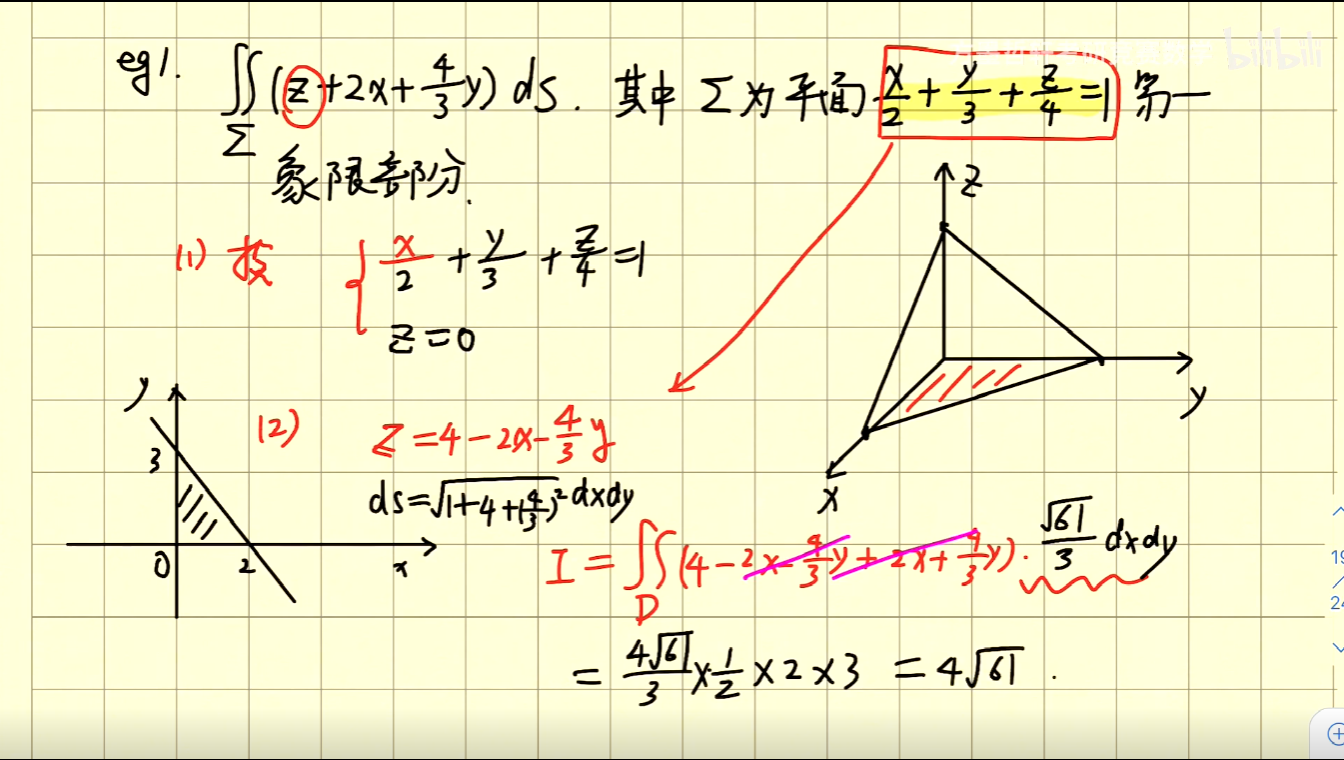 eg1. ∬_Σ (z+2x+4/3y) ds. 其中 Σ为平面 x/2+y/3+z/4=1 第一
象限部分.
(1) 投 { x/2+y/3+z/4=1
z=0
z
y
x
y
3
0
2
x
(2) z=4-2x-4/3y
ds=√(1+4+(4/3)²) dxdy
I=∬_D (4-2x-4/3y+2x+4/3y)·√61/3 dxdy
=4√61/3×1/2×2×3 =4√61.
bilibili
19
24